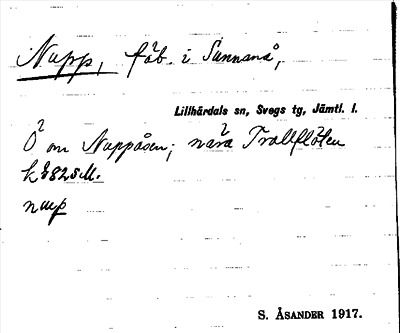 Nupp, fäb. i Sunnanå,
Lillhärdals sn, Svegs tg, Jämtl. l.
Ö om Nuppåsen; nära Trollflöten
nup
S. ÅSANDER 1917.